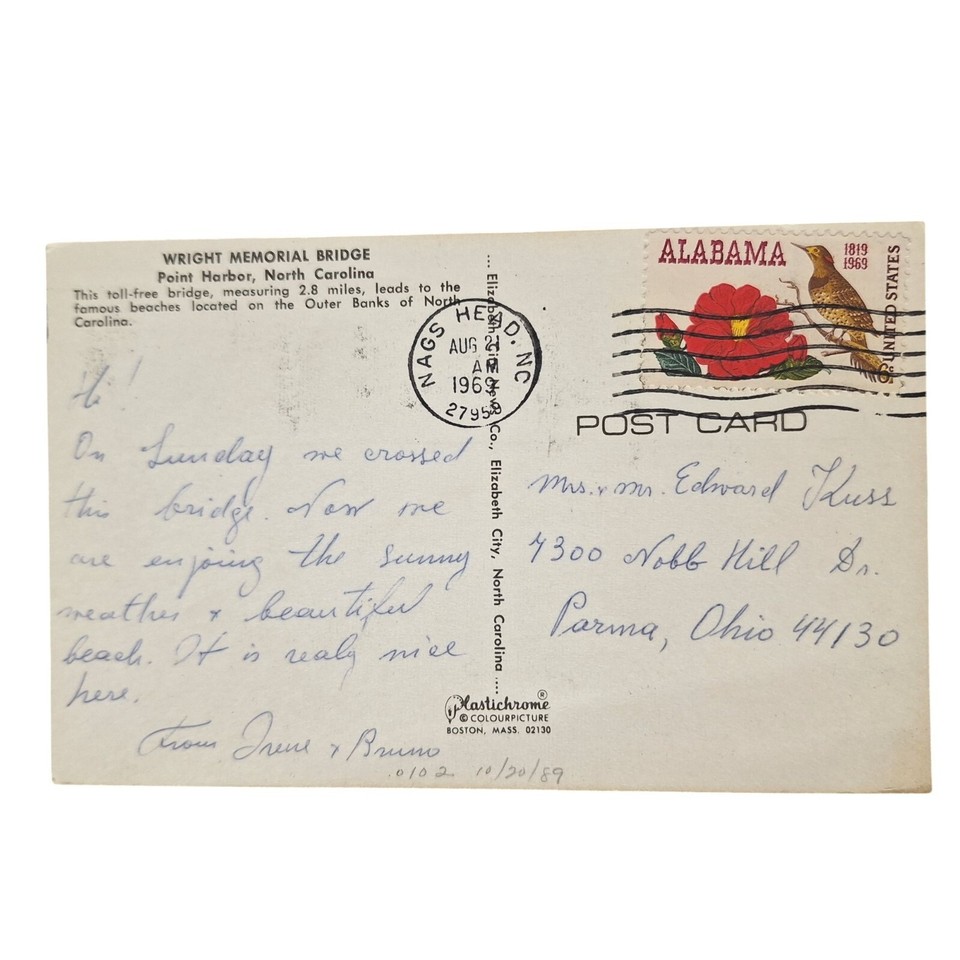 WRIGHT MEMORIAL BRIDGE
Point Harbor, North Carolina
This toll-free bridge, measuring 2.8 miles, leads to the
famous beaches located on the Outer Banks of North
Carolina.
Hi!
On Sunday we crossed
this bridge. Now we
are enjoing the sunny
weather & beautiful
beach. It is realy nice
here.
From Irene & Bruno
.0102 10/20/89
... Elizabeth City News Co., Elizabeth City, North Carolina ....
Plastichrome ®
© COLOURPICTURE
BOSTON, MASS. 02130
NAGS HEAD, NC
AUG 21
AM
1969
27959
ALABAMA
1819
1969
6c UNITED STATES
POST CARD
Mrs. & Mr. Edward Kuss
7300 Nobb Hill Dr.
Parma, Ohio 44130